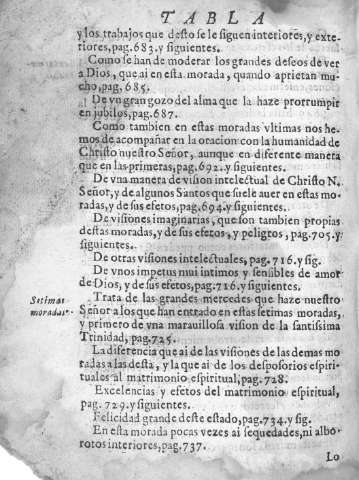 TABLA
y los trabajos que desto se le siguen interiores, y exte-
riores, pag. 683. y siguientes.
Como se han de moderar los grandes deseos de ver
a Dios, que ai en esta morada, quando aprietan mu-
cho, pag, 685.
De vn gran gozo del alma que la haze prorrumpir
en jubilos, pag. 687.
Como tambien en estas moradas vltimas nos he-
mos de acompañar en la oracion con la humanidad de
Christo nuestro Señor, aunque en diferente manera
que en las primeras, pag. 692. y siguientes.
De vna manera de vision intelectual de Christo N.
Señor, y de algunos Santos que suele auer en estas mo-
radas, y de sus efetos, pag. 694. y siguientes.
De visiones imaginarias, que son tambien propias
destas moradas, y de sus efetos, y peligros, pag. 705. y
siguientes.
De otras visiones intelectuales, pag. 716. y sig.
De vnos impetus mui intimos y sensibles de amor
de Dios, y de sus efetos, pag. 716. y siguientes.
Setimas
moradas.
Trata de las grandes mercedes que haze nuestro
Señor a los que han entrado en estas setimas moradas,
y primero de vna marauillosa vision de la santissima
Trinidad, pag. 725.
La diferencia que ai de las visiones de las demas mo
radas a las desta, y la que ai de los desposorios espiri-
tuales al matrimonio espiritual, pag. 728.
Excelencias y efetos del matrimonio espiritual,
pag. 729. y siguientes.
Felicidad grande deste estado, pag. 734. y sig.
En esta morada pocas vezes ai sequedades, ni albo-
rotos interiores, pag. 737.
Lo